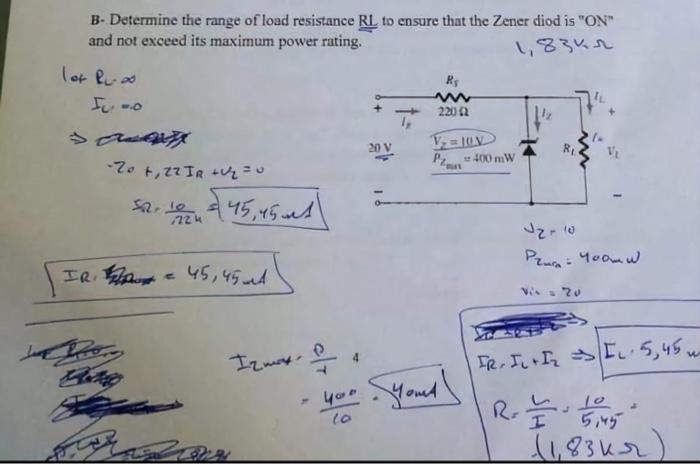 B- Determine the range of load resistance RL to ensure that the Zener diod is "ON"
and not exceed its maximum power rating.
1,83kΩ
let RL ∞
IL = 0
⇒
-20 + ,22 IR + Vz = 0
10
,22k
= 45,45 mA
IR = 45,45 mA
RS
220 Ω
IR
+
20 V
-
VZ = 10 V
PZmax = 400 mW
IZ
IL
+
RL
VL
-
Vz = 10
Pzmax = 400mW
Vin = 20
Izmax = P
= 400
10
= 40mA
IR = IL + Iz ⇒ IL = 5,45 m
R = V
I
= 10
5,45
=
(1,83kΩ)